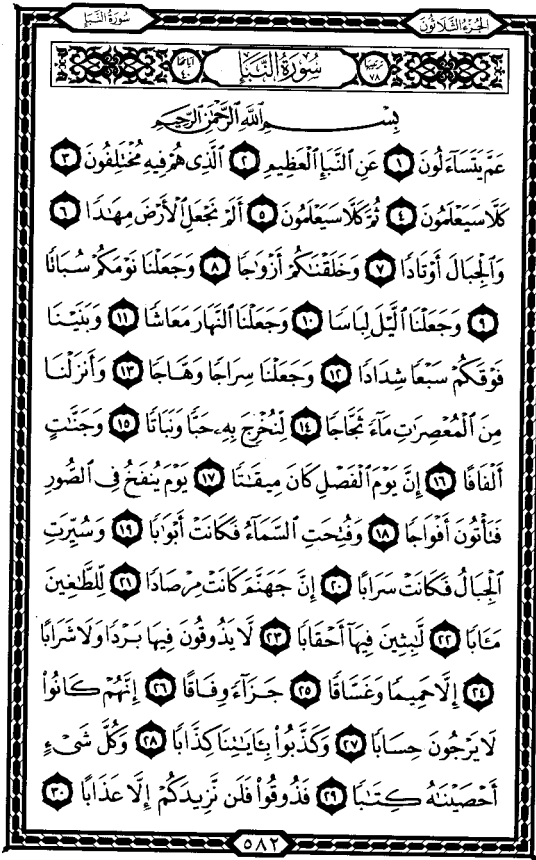 الجُزْءُ الثَّلَاثُونَ سُورَةُ النَّبَإِ
ترتيبها ٧٨ سُورَةُ النَّبَإِ آياتها ٤٠
بِسْمِ ٱللَّهِ ٱلرَّحْمَٰنِ ٱلرَّحِيمِ
عَمَّ يَتَسَآءَلُونَ ١ عَنِ ٱلنَّبَإِ ٱلْعَظِيمِ ٢ ٱلَّذِى هُمْ فِيهِ مُخْتَلِفُونَ ٣
كَلَّا سَيَعْلَمُونَ ٤ ثُمَّ كَلَّا سَيَعْلَمُونَ ٥ أَلَمْ نَجْعَلِ ٱلْأَرْضَ مِهَٰدًا ٦
وَٱلْجِبَالَ أَوْتَادًا ٧ وَخَلَقْنَٰكُمْ أَزْوَٰجًا ٨ وَجَعَلْنَا نَوْمَكُمْ سُبَاتًا
٩ وَجَعَلْنَا ٱلَّيْلَ لِبَاسًا ١٠ وَجَعَلْنَا ٱلنَّهَارَ مَعَاشًا ١١ وَبَنَيْنَا
فَوْقَكُمْ سَبْعًا شِدَادًا ١٢ وَجَعَلْنَا سِرَاجًا وَهَّاجًا ١٣ وَأَنزَلْنَا
مِنَ ٱلْمُعْصِرَٰتِ مَآءً ثَجَّاجًا ١٤ لِّنُخْرِجَ بِهِۦ حَبًّا وَنَبَاتًا ١٥ وَجَنَّٰتٍ
أَلْفَافًا ١٦ إِنَّ يَوْمَ ٱلْفَصْلِ كَانَ مِيقَٰتًا ١٧ يَوْمَ يُنفَخُ فِى ٱلصُّورِ
فَتَأْتُونَ أَفْوَاجًا ١٨ وَفُتِحَتِ ٱلسَّمَآءُ فَكَانَتْ أَبْوَٰبًا ١٩ وَسُيِّرَتِ
ٱلْجِبَالُ فَكَانَتْ سَرَابًا ٢٠ إِنَّ جَهَنَّمَ كَانَتْ مِرْصَادًا ٢١ لِّلطَّٰغِينَ
مَـَٔابًا ٢٢ لَّٰبِثِينَ فِيهَآ أَحْقَابًا ٢٣ لَّا يَذُوقُونَ فِيهَا بَرْدًا وَلَا شَرَابًا
٢٤ إِلَّا حَمِيمًا وَغَسَّاقًا ٢٥ جَزَآءً وِفَاقًا ٢٦ إِنَّهُمْ كَانُوا۟
لَا يَرْجُونَ حِسَابًا ٢٧ وَكَذَّبُوا۟ بِـَٔايَٰتِنَا كِذَّابًا ٢٨ وَكُلَّ شَىْءٍ
أَحْصَيْنَٰهُ كِتَٰبًا ٢٩ فَذُوقُوا۟ فَلَن نَّزِيدَكُمْ إِلَّا عَذَابًا ٣٠
٥٨٢